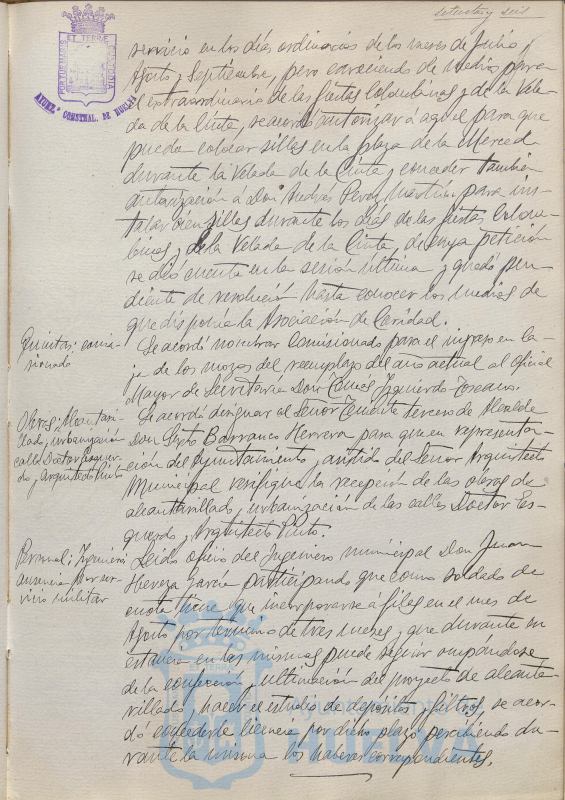 setenta y seis
PORTUS MARIS ET TERRÆ CUSTODIA
AYUNt.º CONSTNAL. DE HUELVA
servicio en los días ordinarios de los meses de Julio,
Agosto y Septiembre, pero careciendo de medios para
el extraordinario de las fiestas Colombinas y de la Vela-
da de la Cinta, se acordó autorizar á aquel para que
pueda colocar sillas en la plaza de la Merced
durante la Velada de la Cinta y conceder también
autorización á Don Andrés Perez Martín para ins-
talar cien sillas durante los días de las fiestas Colom-
binas y de la Velada de la Cinta, de cuya petición
se dió cuenta en la sesión última y quedó pen-
diente de resolución hasta conocer los medios de
que disponía la Asociación de Caridad.
Quintas: comi-
sionado
Se acordó nombrar Comisionado para el ingreso en Ca-
ja de los mozos del reemplazo del año actual al Oficial
Mayor de Secretaria Don Tomás Izquierdo Toscano.
Obras: Alcantari-
llado, urbanización
calles Doctor Esquer-
do y Arquitecto Pinto
Se acordó designar al Señor Teniente tercero de Alcalde
Don Sixto Barranco Herrera para que en representa-
ción del Ayuntamiento y asistido del Señor Arquitecto
Municipal verifique la recepción de las obras de
alcantarillado y urbanización de las calles Doctor Es-
querdo y Arquitecto Pinto.
Personal; Ingeniero
ausencia por ser-
vicio militar
Leido oficio del Ingeniero municipal Don Juan
Hereza García participando que como soldado de
cuota tiene que incorporarse á filas en el mes de
Agosto por termino de tres meses, y que durante su
estancia en las mismas puede seguir ocupándose
de la confección y ultimación del proyecto de alcanta-
rillado y hacer el estudio de depósitos y filtros, se acor-
dó concederle licencia por dicho plazo percibiendo du-
rante la misma los haberes correspondientes.